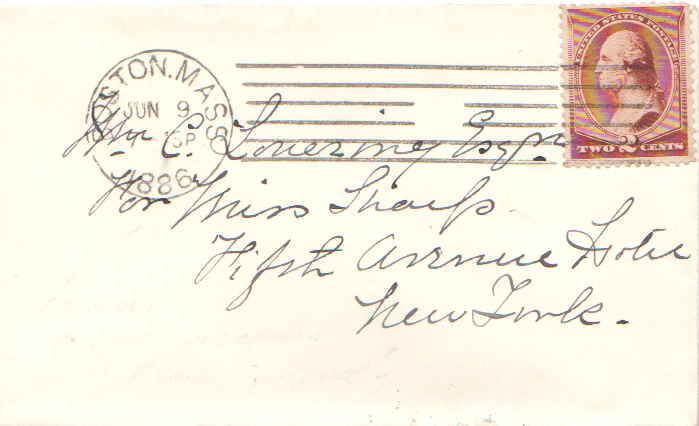 BOSTON. MASS
JUN 9
15P
1886
UNITED STATES POSTAGE
2
TWO CENTS
Wm C. Lovering Esq.
For Miss Sharp
Fifth Avenue Hotel
New York.